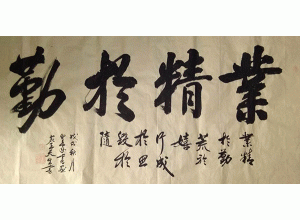 業精於勤
業精
於勤
荒於
嬉
行成
於思
毀於
隨
戊戌秋月